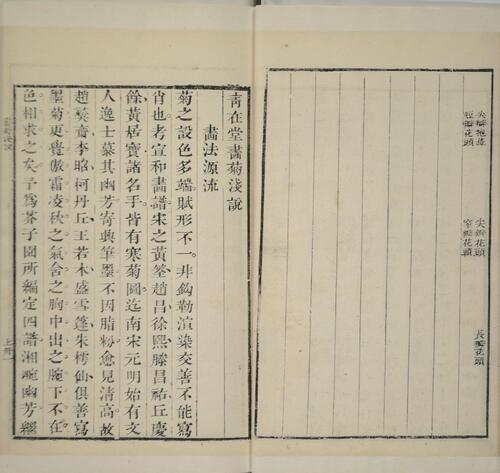 尖瓣抱蕊
短瓣花頭
尖瓣花頭
窄瓣花頭
長瓣花頭
青在堂畫菊淺說
畫法源流
菊之設色多端賦形不一非鈎勒渲染交善不能寫
肖也考宣和畫譜宋之黃筌趙昌徐熙滕昌祐丘慶
餘黃居寶諸名手皆有寒菊圖迄南宋元明始有文
人逸士慕其幽芳寄興筆墨不因脂粉愈見清高故
趙彝齋李昭柯丹丘王若木盛雪篷朱樗仙俱善寫
墨菊更覺傲霜凌秋之氣含之胸中出之腕下不在
色相求之矣予為芥子園所編定四譜湘畹幽芳經